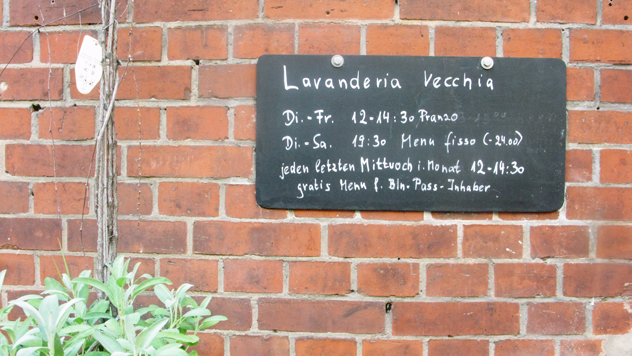 Lavanderia Vecchia
Di.-Fr. 12-14:30 Pranzo
Di.-Sa. 19:30 Menu fisso (-24.00)
jeden letzten Mittwoch i. Monat 12-14:30
gratis Menu f. Bln-Pass-Inhaber